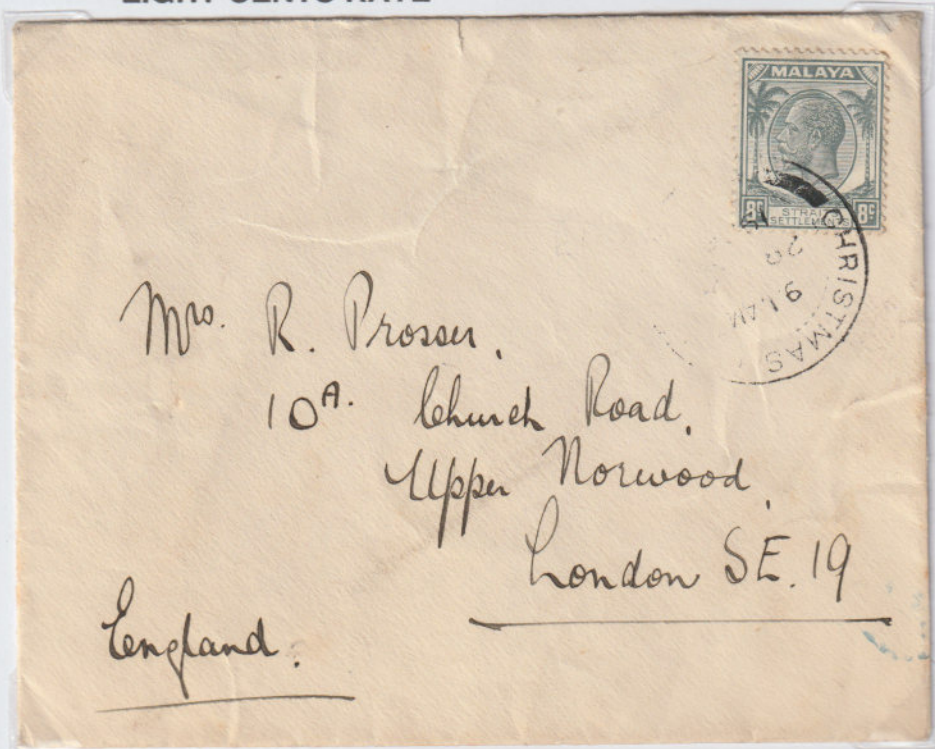 MALAYA
8c STRAITS SETTLEMENTS 8c
CHRISTMAS
9 1. AM
Mrs. R. Prosser.
10A. Church Road.
Upper Norwood,
London S.E. 19
England.